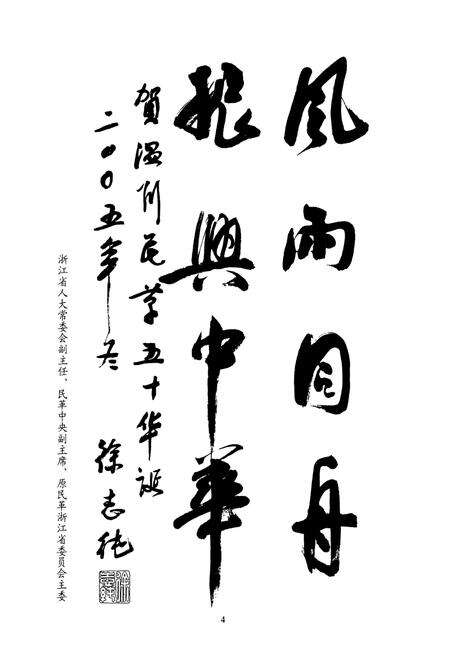 風雨同舟
振興中華
賀温州民革五十华诞
二〇〇五年冬
徐志纯
浙江省人大常委会副主任、民革中央副主席、原民革浙江省委员会主委
4